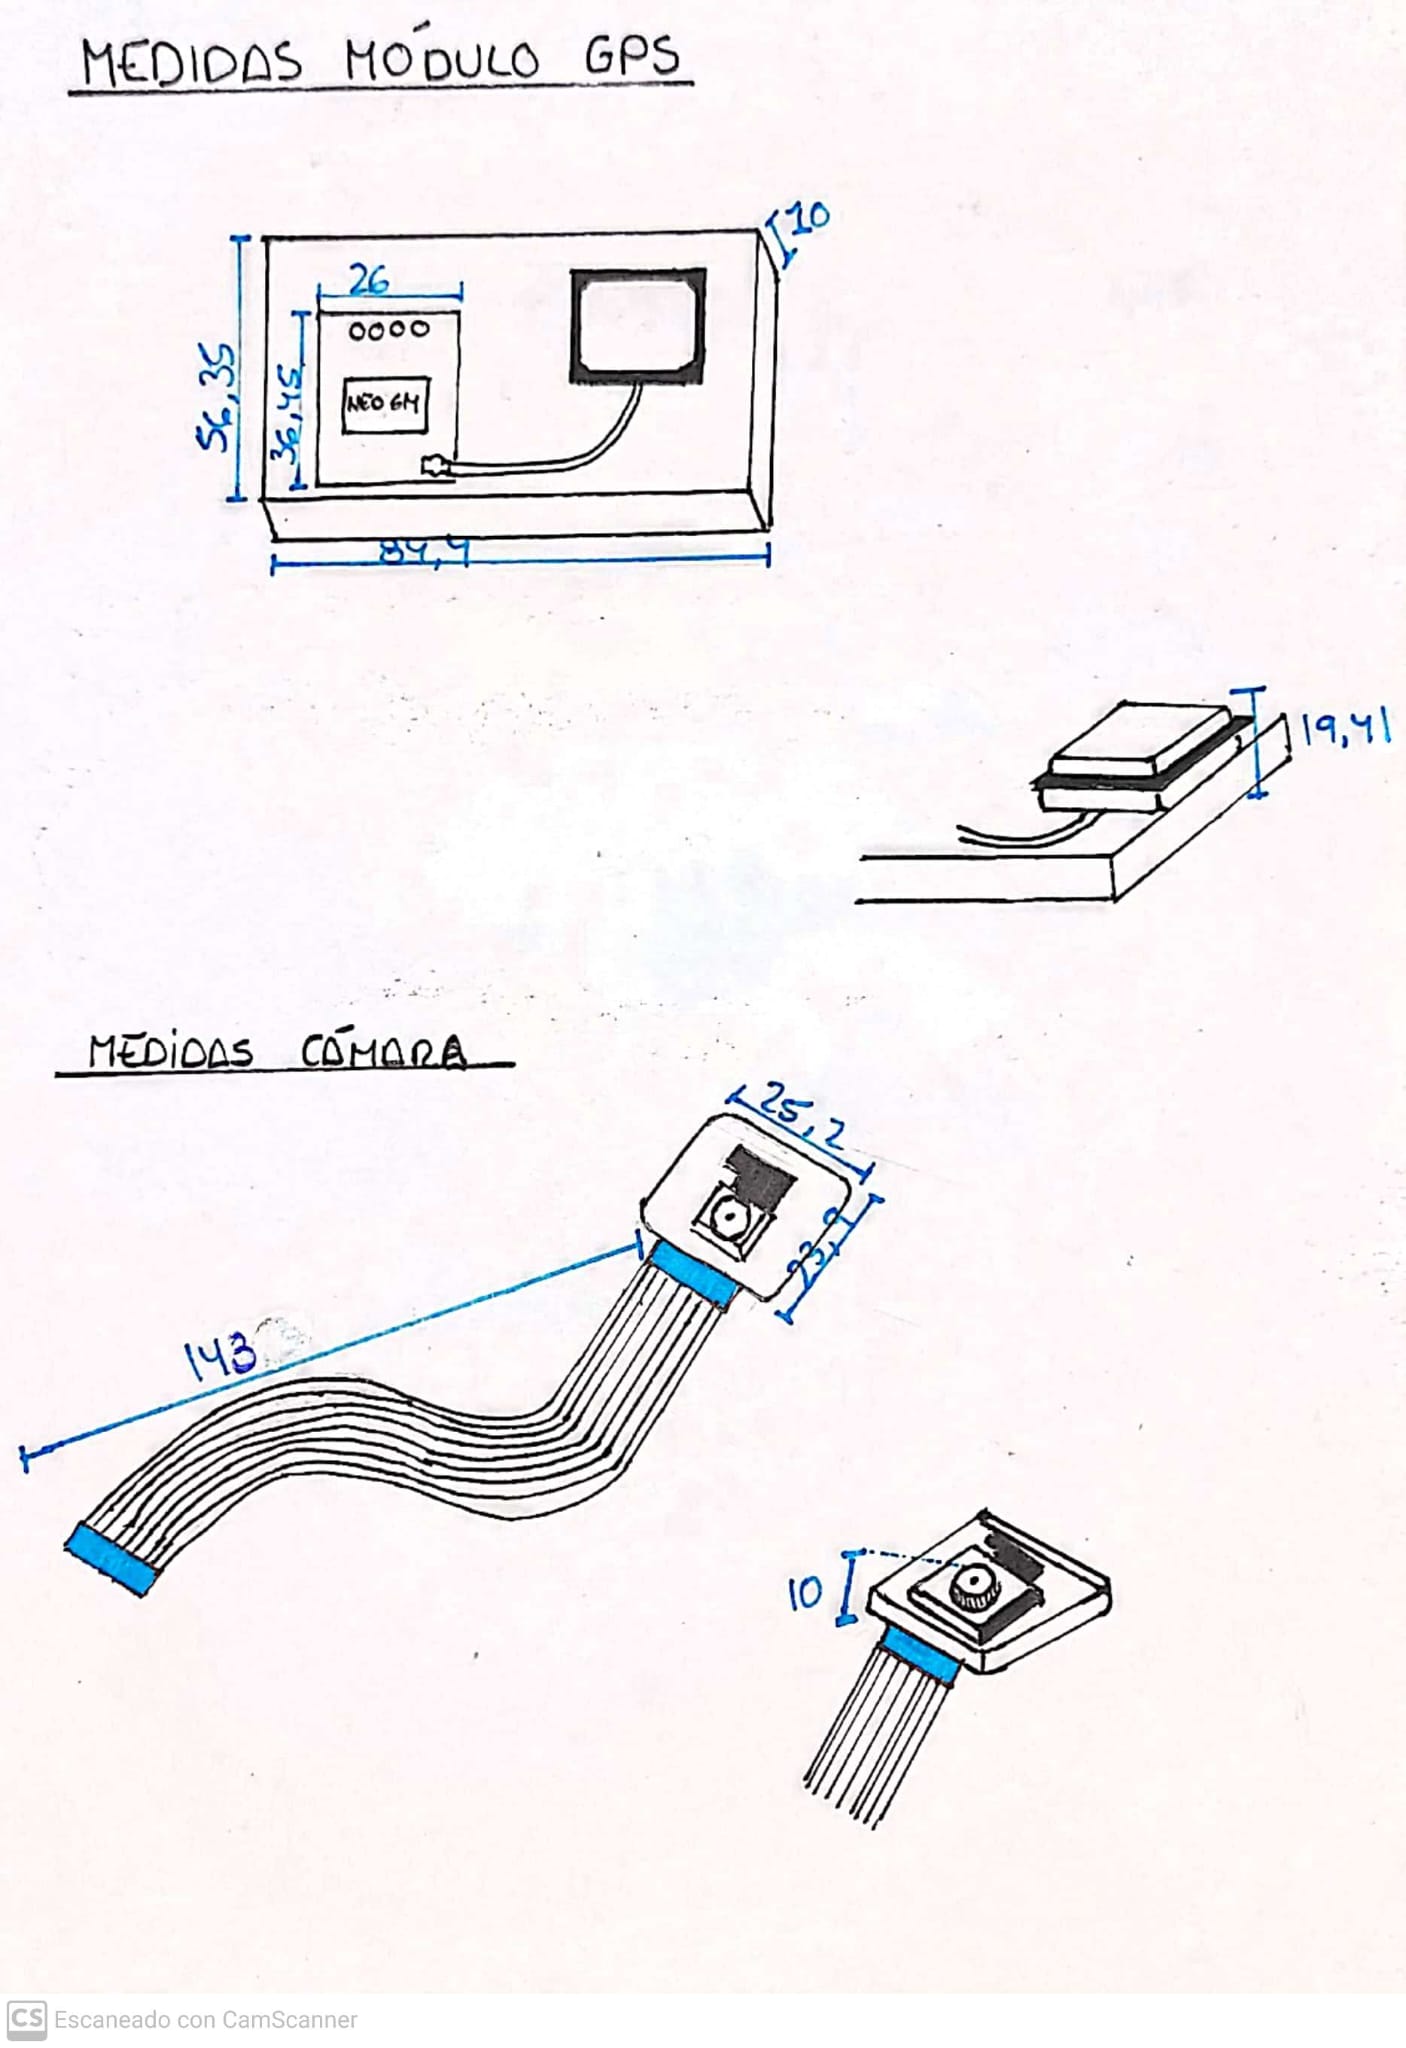 MEDIDAS MÓDULO GPS
10
26
56,35
36,45
NEO 6M
84,4
19,41
MEDIDAS CÁMARA
25,2
23,9
143
10
CS Escaneado con CamScanner